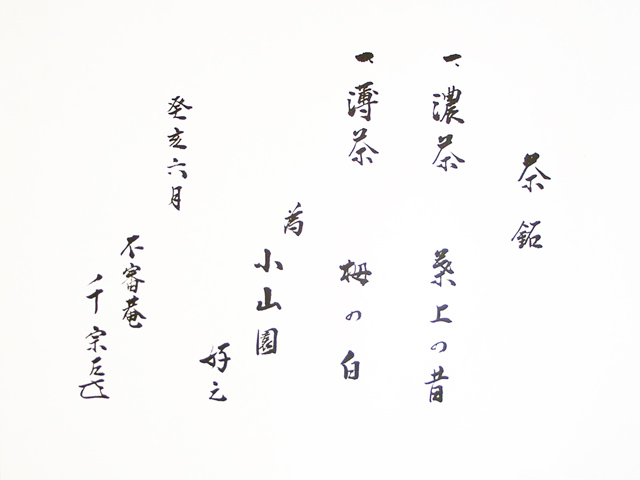 茶銘
一、濃茶　葉上の昔
一、薄茶　栂の白
為
小山園
好之
癸亥六月
不審菴
千宗左